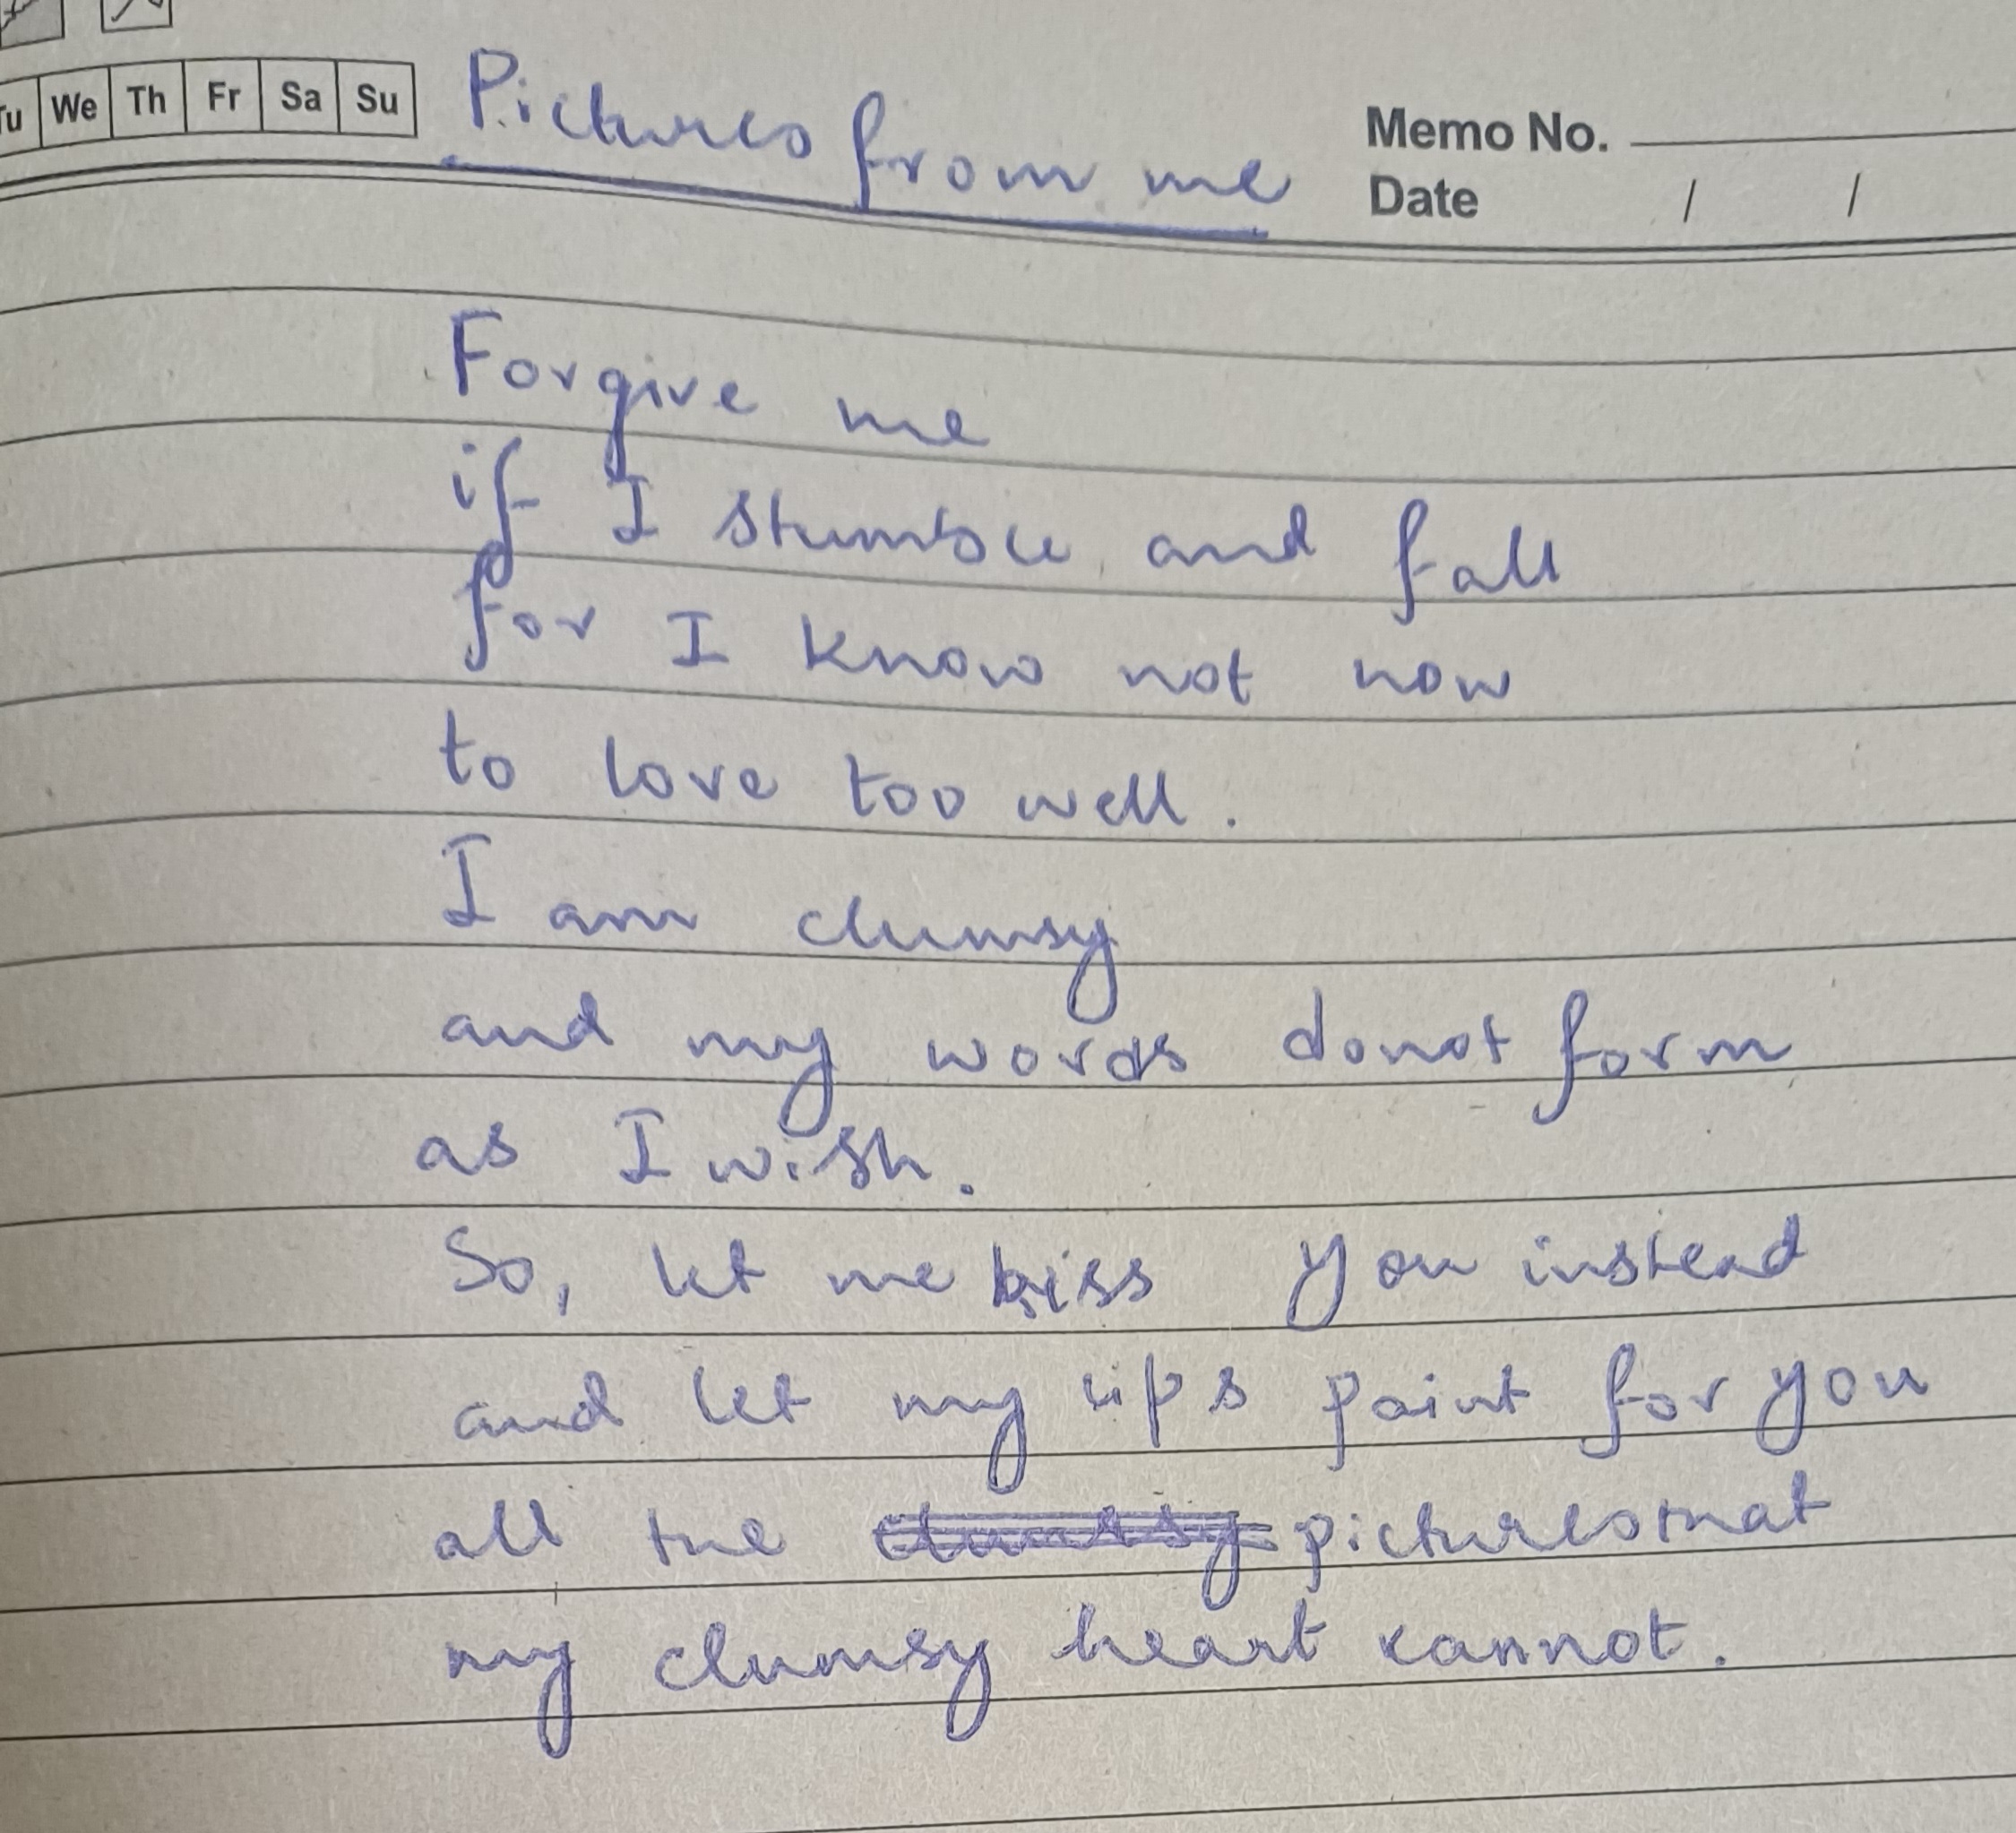 Tu We Th Fr Sa Su
Pictures from me
Memo No.
Date / /
Forgive me
if I stumble and fall
for I know not how
to love too well.
I am clumsy
and my words donot form
as I wish.
So, let me kiss you instead
and let my lips paint for you
all the pictures that
my clumsy heart cannot.